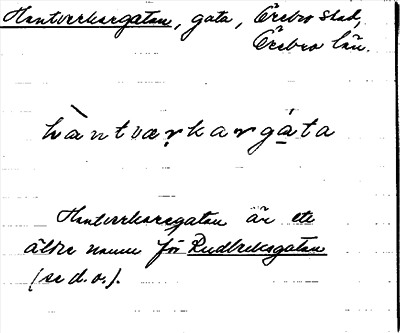 Hantverkargatan, gata, Örebro stad,
Örebro län.
hàntværkargáta
Hantverkaregatan är ett
äldre namn för Rudbeksgatan
(se d.o.).